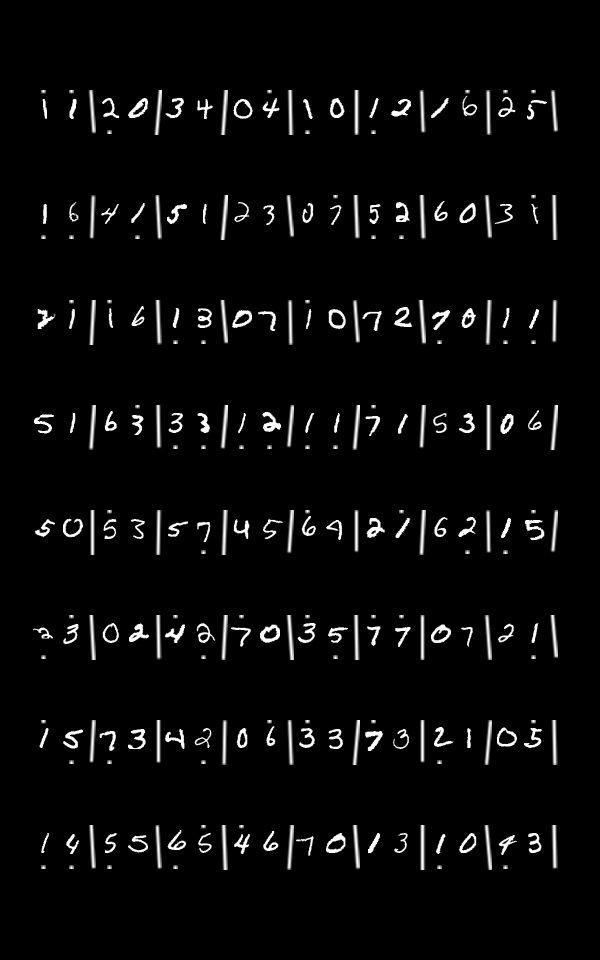 1̇ 1̇ | 2̣ 0 | 3 4 | 0 4̇ | 1̣ 0 | 1̣ 2 | 1 6̇ | 2̇ 5̇ |
1̣ 6̣ | 4 1̣ | 5 1 | 2 3 | 0 7̇ | 5̣ 2̣ | 6 0 | 3 1̇ |
2̇ 1̇ | 1̇ 6 | 1̣ 3̣ | 0 7 | 1̇ 0 | 7 2 | 7̣ 0 | 1̣ 1̣ |
5 1 | 6 3̇ | 3̣ 3̣ | 1̣ 2̣ | 1̣ 1̣ | 7̇ 1 | 5 3 | 0 6 |
5 0 | 5̇ 3 | 5 7̣ | 4 5 | 6̇ 4 | 2 1̇ | 6 2̣ | 1̣ 5̇ |
2̣ 3̇ | 0 2 | 4̇ 2̣ | 7̇ 0 | 3̇ 5̣ | 7̇ 7̇ | 0 7 | 2 1̣ |
1̇ 5̣ | 7̣ 3 | 4 2̣ | 0 6̇ | 3̇ 3 | 7̇ 3 | 2̣ 1 | 0 5̇ |
1̣ 4̣ | 5̣ 5 | 6̣ 5̇ | 4̇ 6 | 7 0 | 1 3 | 1̣ 0 | 4̣ 3 |